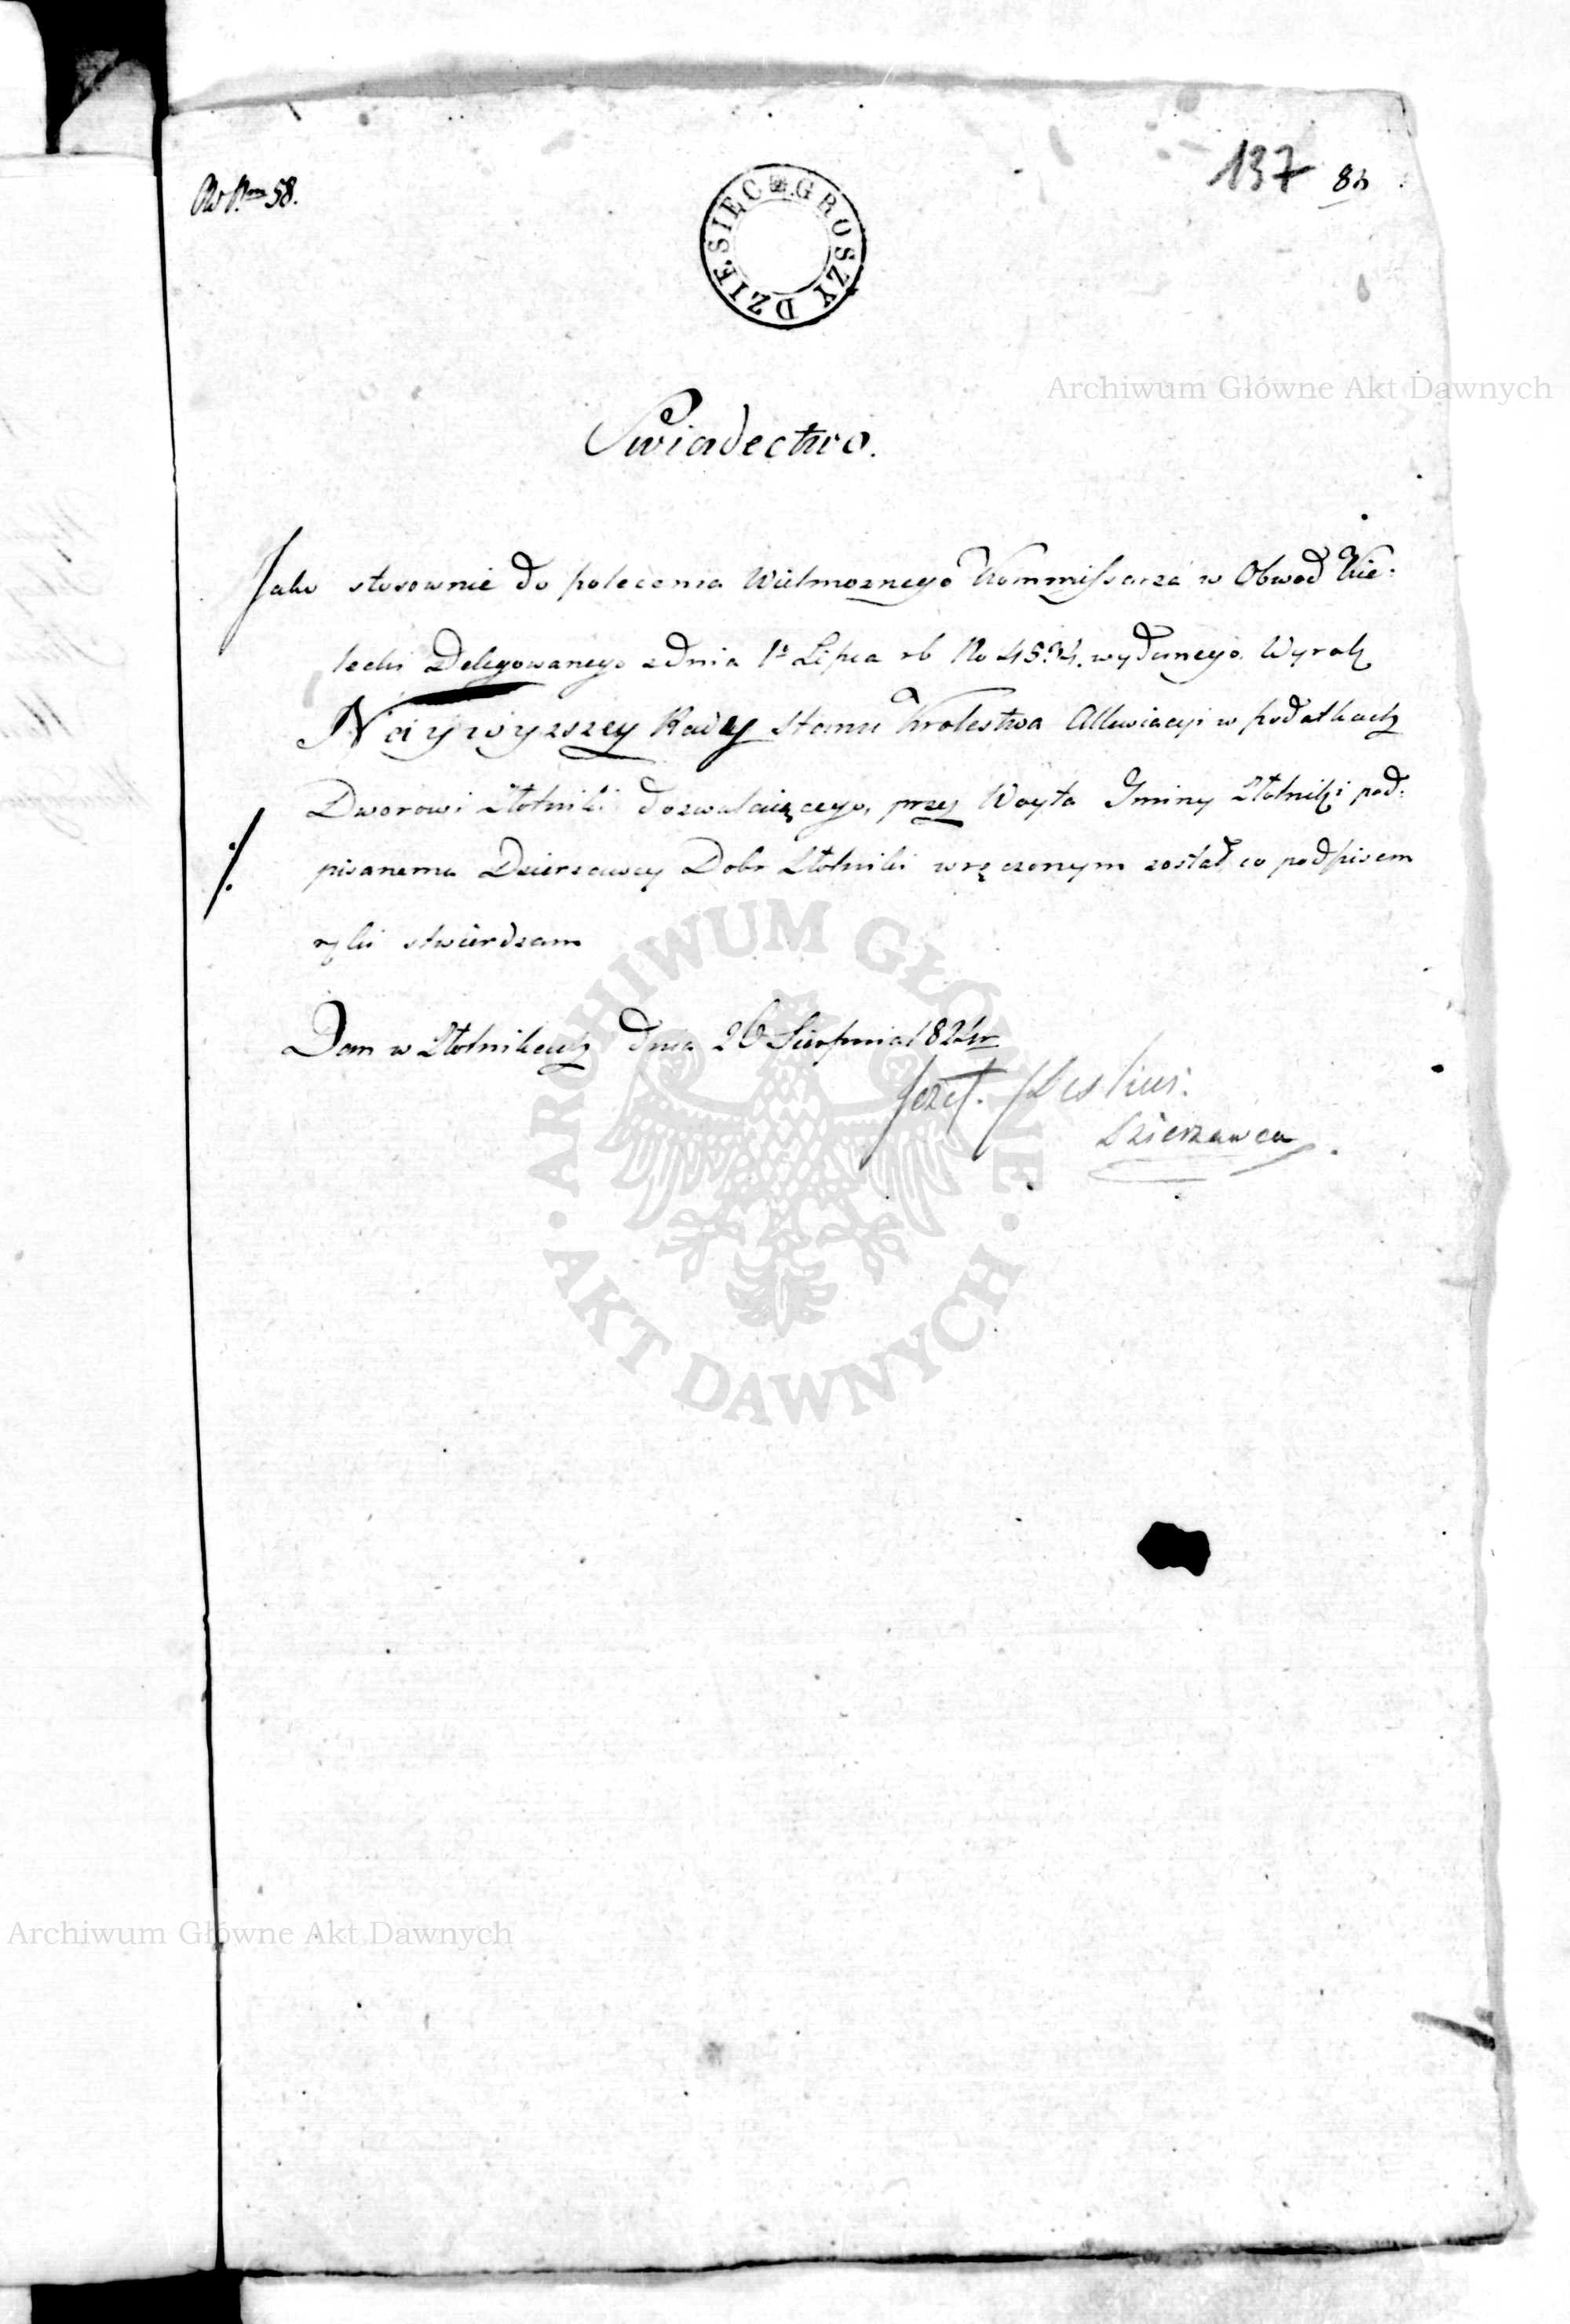 58.
137
84
DZIESIĘĆ GROSZY
Swiadectwo.
Jako stosownie do polecenia Wielmoznego Kommissarza w Obwod Kie-
lecki Delegowanego z dnia 1º Lipca rb No 4534. wydanego. Wyrok
Naywyzszey Rady Stanu Krolestwa Allewiacyi w podatkach
Dworowi Złotniki dozwalaiącego, przez Woyta Gminy Złotniki pod-
pisanemu Dzierzawcy Dobr Złotniki wręczonym został, co podpisem
ręki stwierdzam
Dan w Złotnikach dnia 26 Sierpnia 1824 r
Jozef
Dzierzawca
Archiwum Główne Akt Dawnych
ARCHIWUM GŁÓWNE · AKT DAWNYCH ·
Archiwum Główne Akt Dawnych